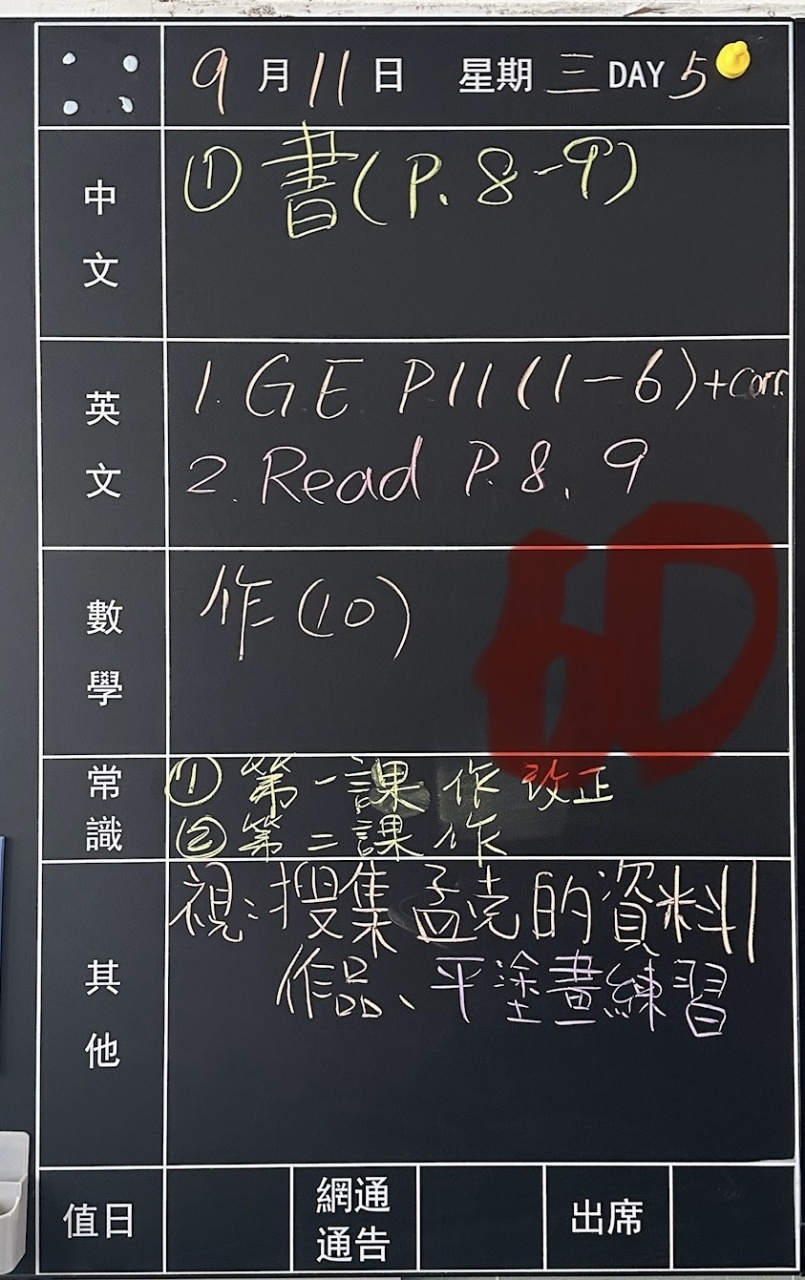 9月11日 星期三 DAY 5
中文
① 書(P. 8-9)
英文
1. GE P11(1-6)+corr.
2. Read P.8, 9
數學
作(10)
6D
常識
① 第一課 作 改正
② 第二課 作
其他
視:搜集孟克的資料/
作品、平塗畫練習
值日
網通通告
出席